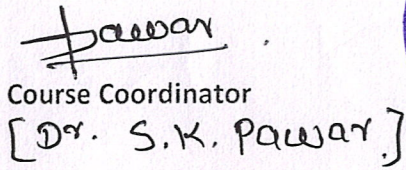 Pawar
Course Coordinator
[Dr. S.K. Pawar]